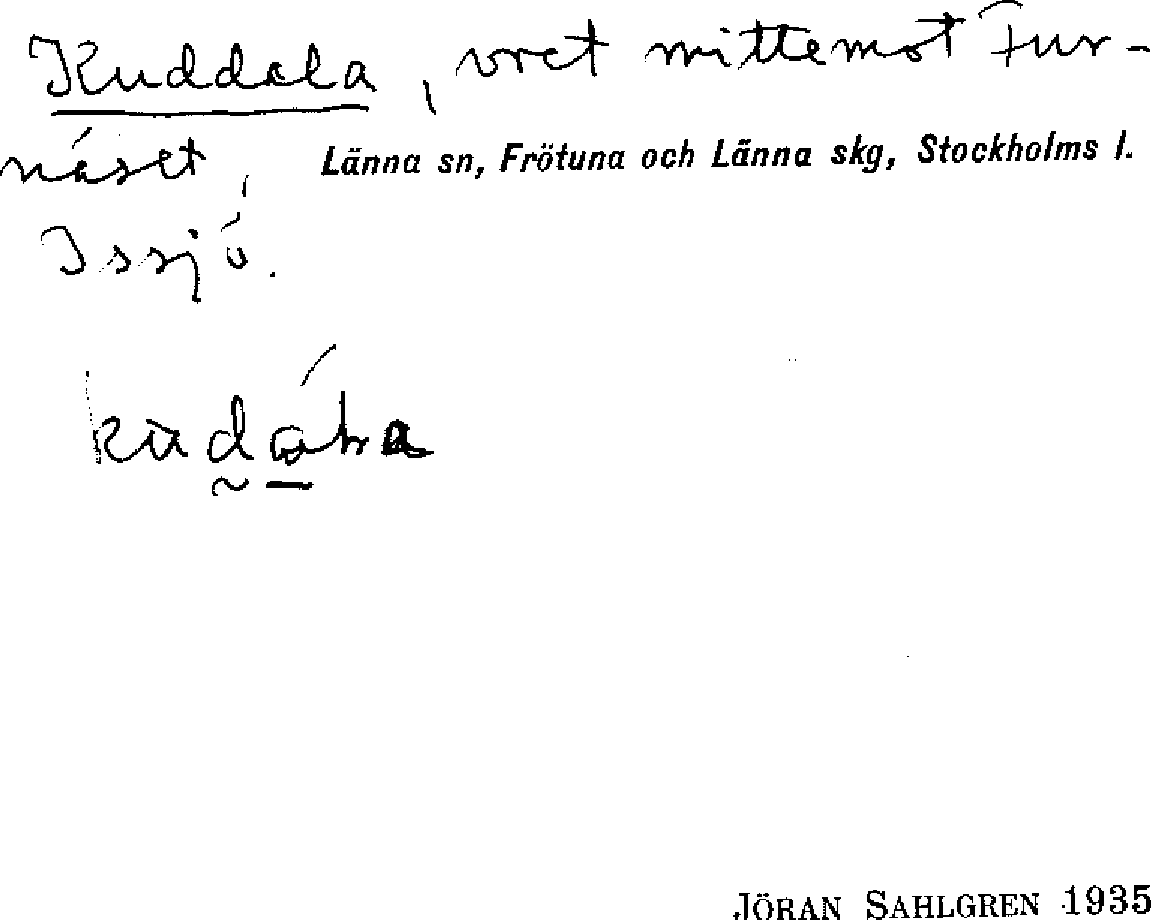 Kuddala, vret mittemot Fur-
näset, Länna sn, Frötuna och Länna skg, Stockholms l.
Issjö.
JÖRAN SAHLGREN 1935